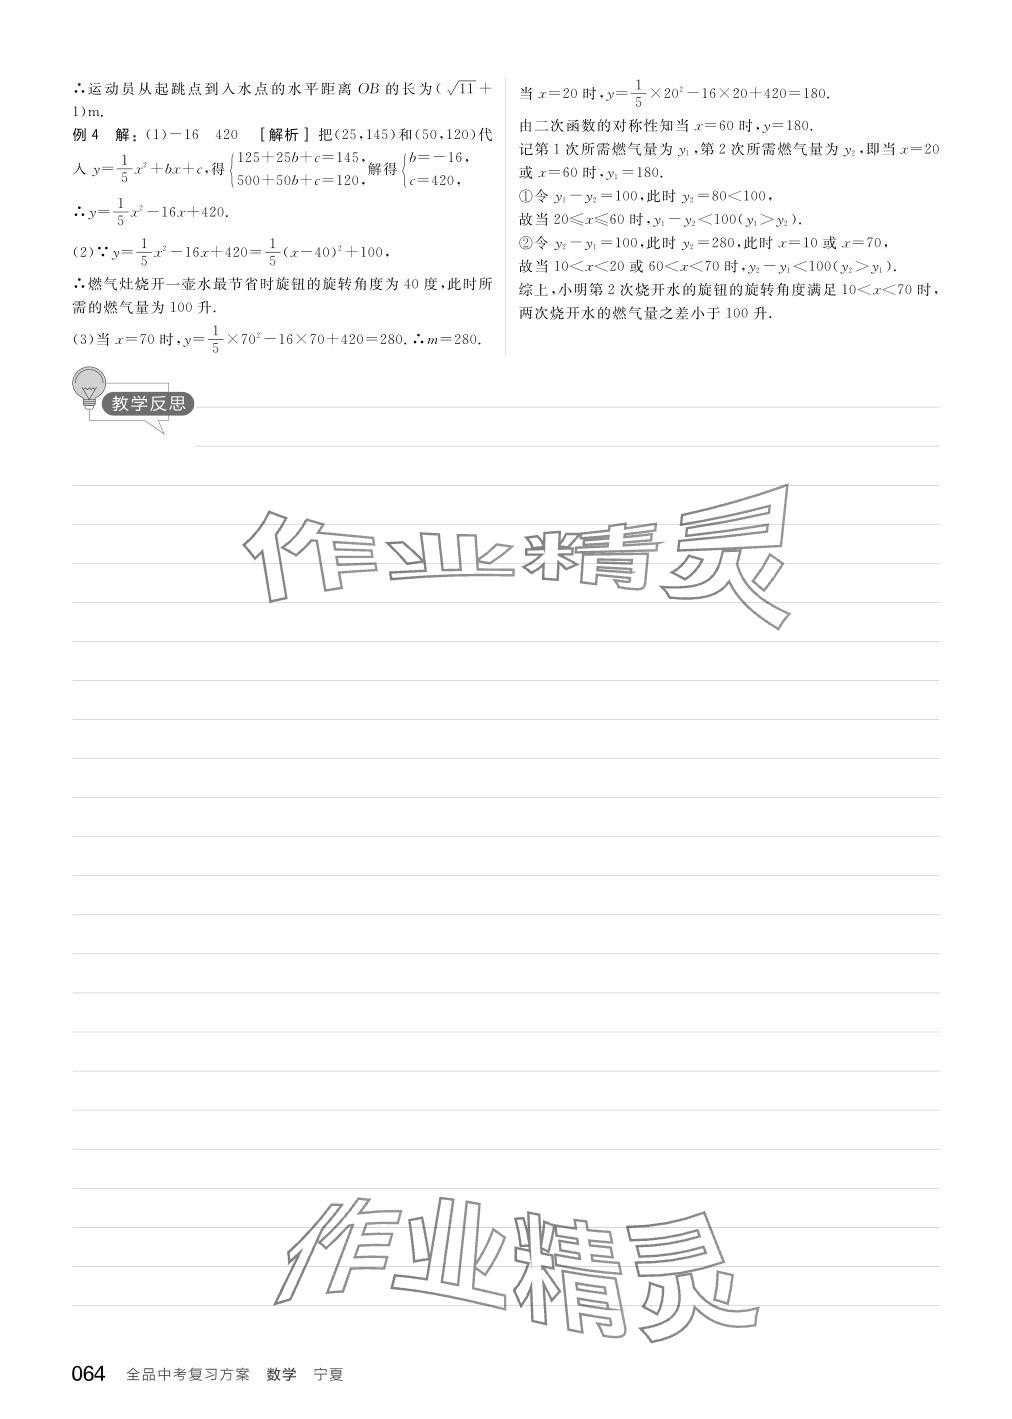 ∴运动员从起跳点到入水点的水平距离 OB 的长为(√11+
1)m.
例 4 解：(1)−16 420 [解析] 把(25,145)和(50,120)代
入 y=1/5x²+bx+c,得{125+25b+c=145, 500+50b+c=120,解得{b=−16, c=420,
∴y=1/5x²−16x+420.
(2)∵y=1/5x²−16x+420=1/5(x−40)²+100,
∴燃气灶烧开一壶水最节省时旋钮的旋转角度为 40 度,此时所
需的燃气量为 100 升.
(3)当 x=70 时,y=1/5×70²−16×70+420=280.∴m=280.
当 x=20 时,y=1/5×20²−16×20+420=180.
由二次函数的对称性知当 x=60 时,y=180.
记第 1 次所需燃气量为 y₁,第 2 次所需燃气量为 y₂,即当 x=20
或 x=60 时,y₁=180.
①令 y₁−y₂=100,此时 y₂=80<100,
故当 20⩽x⩽60 时,y₁−y₂<100(y₁>y₂).
②令 y₂−y₁=100,此时 y₂=280,此时 x=10 或 x=70,
故当 10<x<20 或 60<x<70 时,y₂−y₁<100(y₂>y₁).
综上,小明第 2 次烧开水的旋钮的旋转角度满足 10<x<70 时,
两次烧开水的燃气量之差小于 100 升.
教学反思
作业精灵
作业精灵
064 全品中考复习方案 数学 宁夏